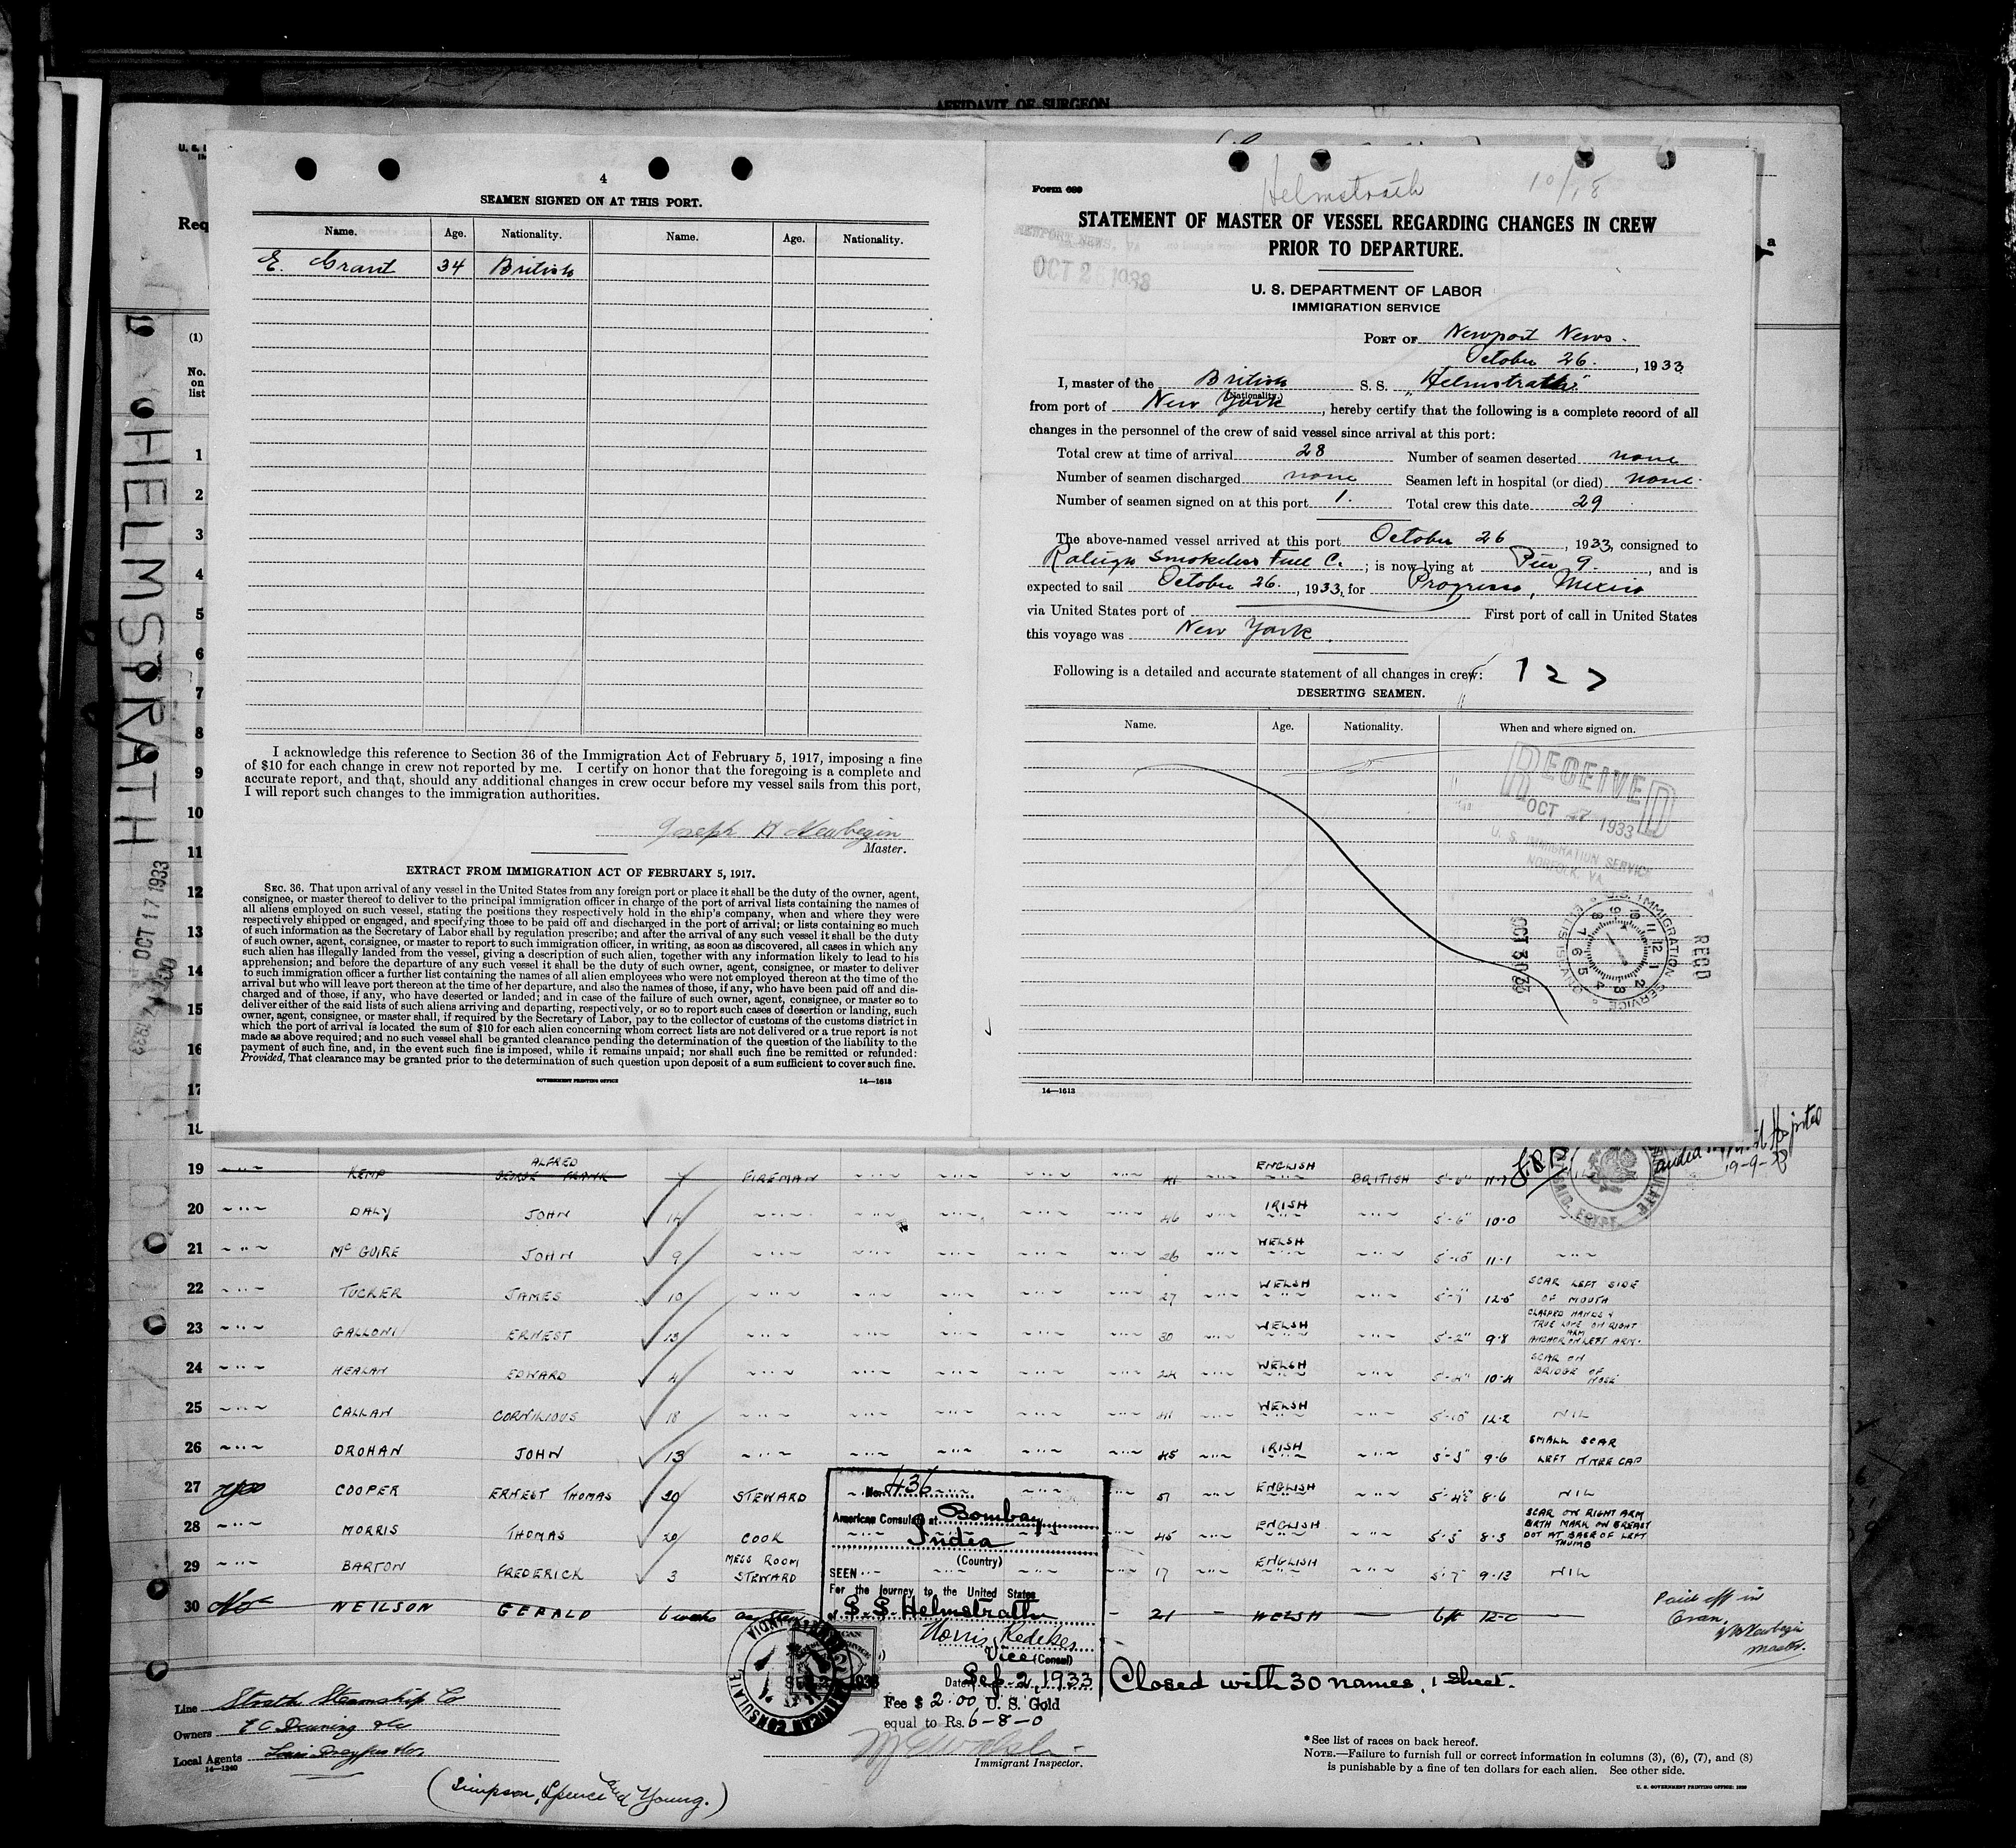 AFFIDAVIT OF SURGEON
4
SEAMEN SIGNED ON AT THIS PORT.
Name. Age. Nationality. Name. Age. Nationality.
E. Grant 34 British
I acknowledge this reference to Section 36 of the Immigration Act of February 5, 1917, imposing a fine
of $10 for each change in crew not reported by me. I certify on honor that the foregoing is a complete and
accurate report, and that, should any additional changes in crew occur before my vessel sails from this port,
I will report such changes to the immigration authorities.
Joseph H Newbegin
Master.
EXTRACT FROM IMMIGRATION ACT OF FEBRUARY 5, 1917.
SEC. 36. That upon arrival of any vessel in the United States from any foreign port or place it shall be the duty of the owner, agent,
consignee, or master thereof to deliver to the principal immigration officer in charge of the port of arrival lists containing the names of
all aliens employed on such vessel, stating the positions they respectively hold in the ship's company, when and where they were
respectively shipped or engaged, and specifying those to be paid off and discharged in the port of arrival; or lists containing so much
of such information as the Secretary of Labor shall by regulation prescribe; and after the arrival of any such vessel it shall be the duty
of such owner, agent, consignee, or master to report to such immigration officer, in writing, as soon as discovered, all cases in which any
such alien has illegally landed from the vessel, giving a description of such alien, together with any information likely to lead to his
apprehension; and before the departure of any such vessel it shall be the duty of such owner, agent, consignee, or master to deliver
to such immigration officer a further list containing the names of all alien employees who were not employed thereon at the time of the
arrival but who will leave port thereon at the time of her departure, and also the names of those, if any, who have been paid off and dis-
charged and of those, if any, who have deserted or landed; and in case of the failure of such owner, agent, consignee, or master so to
deliver either of the said lists of such aliens arriving and departing, respectively, or so to report such cases of desertion or landing, such
owner, agent, consignee, or master shall, if required by the Secretary of Labor, pay to the collector of customs of the customs district in
which the port of arrival is located the sum of $10 for each alien concerning whom correct lists are not delivered or a true report is not
made as above required; and no such vessel shall be granted clearance pending the determination of the question of the liability to the
payment of such fine, and, in the event such fine is imposed, while it remains unpaid; nor shall such fine be remitted or refunded:
Provided, That clearance may be granted prior to the determination of such question upon deposit of a sum sufficient to cover such fine.
GOVERNMENT PRINTING OFFICE 14—1613
Form 689
Helmstrath 10/18
STATEMENT OF MASTER OF VESSEL REGARDING CHANGES IN CREW
PRIOR TO DEPARTURE.
NEWPORT NEWS, VA
OCT 26 1933
U. S. DEPARTMENT OF LABOR
IMMIGRATION SERVICE
PORT OF Newport News.
October 26. , 1933
I, master of the British S. S. "Helmstrath"
(Nationality.)
from port of New York , hereby certify that the following is a complete record of all
changes in the personnel of the crew of said vessel since arrival at this port:
Total crew at time of arrival 28 Number of seamen deserted none
Number of seamen discharged none Seamen left in hospital (or died) none.
Number of seamen signed on at this port 1. Total crew this date 29
The above-named vessel arrived at this port October 26 , 1933, consigned to
Raleigh Smokeless Fuel C. ; is now lying at Pier 9. , and is
expected to sail October 26. , 1933, for Progreso, Mexico
via United States port of First port of call in United States
this voyage was New York.
Following is a detailed and accurate statement of all changes in crew: 127
DESERTING SEAMEN.
Name. Age. Nationality. When and where signed on.
RECEIVED
OCT 1933
U. S. IMMIGRATION SERVICE
NORFOLK, VA.
OCT 30 33
U.S. IMMIGRATION SERVICE
RECD
14—1613
Req
(1)
No.
on
list
1
2
3
4
5
6
7
8
9
10
11
12
13
14
15
16
17
18
HELMSTRATH
OCT 17 1933
19 KEMP ALFRED GEORGE FRANK FIREMAN 41 ENGLISH BRITISH
20 DALY JOHN 14 46 IRISH 5'-6" 10-0
21 McGUIRE JOHN 9 26 WELSH 5'-10" 11-1
22 TUCKER JAMES 10 27 WELSH 5'-7" 12-5 SCAR LEFT SIDE
OF MOUTH
23 GALLONI ERNEST 13 30 WELSH 5'-2" 9-8 CLASPED HANDS &
TRUE LOVE ON RIGHT
ARM
ANCHOR ON LEFT ARM.
24 HEALAN EDWARD 4 24 WELSH 5'-4" 10-4 SCAR ON
BRIDGE OF
NOSE
25 CALLAN CORNILIOUS 18 41 WELSH 5'-10" 12-2 NIL
26 DROHAN JOHN 13 45 IRISH 5'-5" 9-6 SMALL SCAR
LEFT KNEE CAP
27 COOPER ERNEST THOMAS 20 STEWARD 51 ENGLISH 8-6 NIL
28 MORRIS THOMAS 20 COOK 45 ENGLISH 5'-5 8-3 SCAR ON RIGHT ARM
BIRTH MARK ON BREAST
DOT AT BASE OF LEFT
THUMB
29 BARTON FREDERICK 3 MESS ROOM
STEWARD 17 ENGLISH 5'-7" 9-13 NIL
30 No NEILSON GERALD 6 weeks 21 WELSH 6ft 12-0
Paid off in
Oran,
J H Newbegin
Master.
PORT SAID, EGYPT
No. 436
American Consulate at Bombay,
India
(Country)
SEEN
For the journey to the United States
of S.S. Helmstrath
Vice (Consul)
Date Sep. 2, 1933
Fee $ 2.00 U. S. Gold
equal to Rs. 6-8-0
AMERICAN CONSULATE
Closed with 30 names, 1 sheet.
Immigrant Inspector.
Line Strath Steamship Co
Owners
Local Agents Louis Dreyfus & Co.
14—1240
(Simpson, Spence and Young.)
*See list of races on back hereof.
NOTE.—Failure to furnish full or correct information in columns (3), (6), (7), and (8)
is punishable by a fine of ten dollars for each alien. See other side.